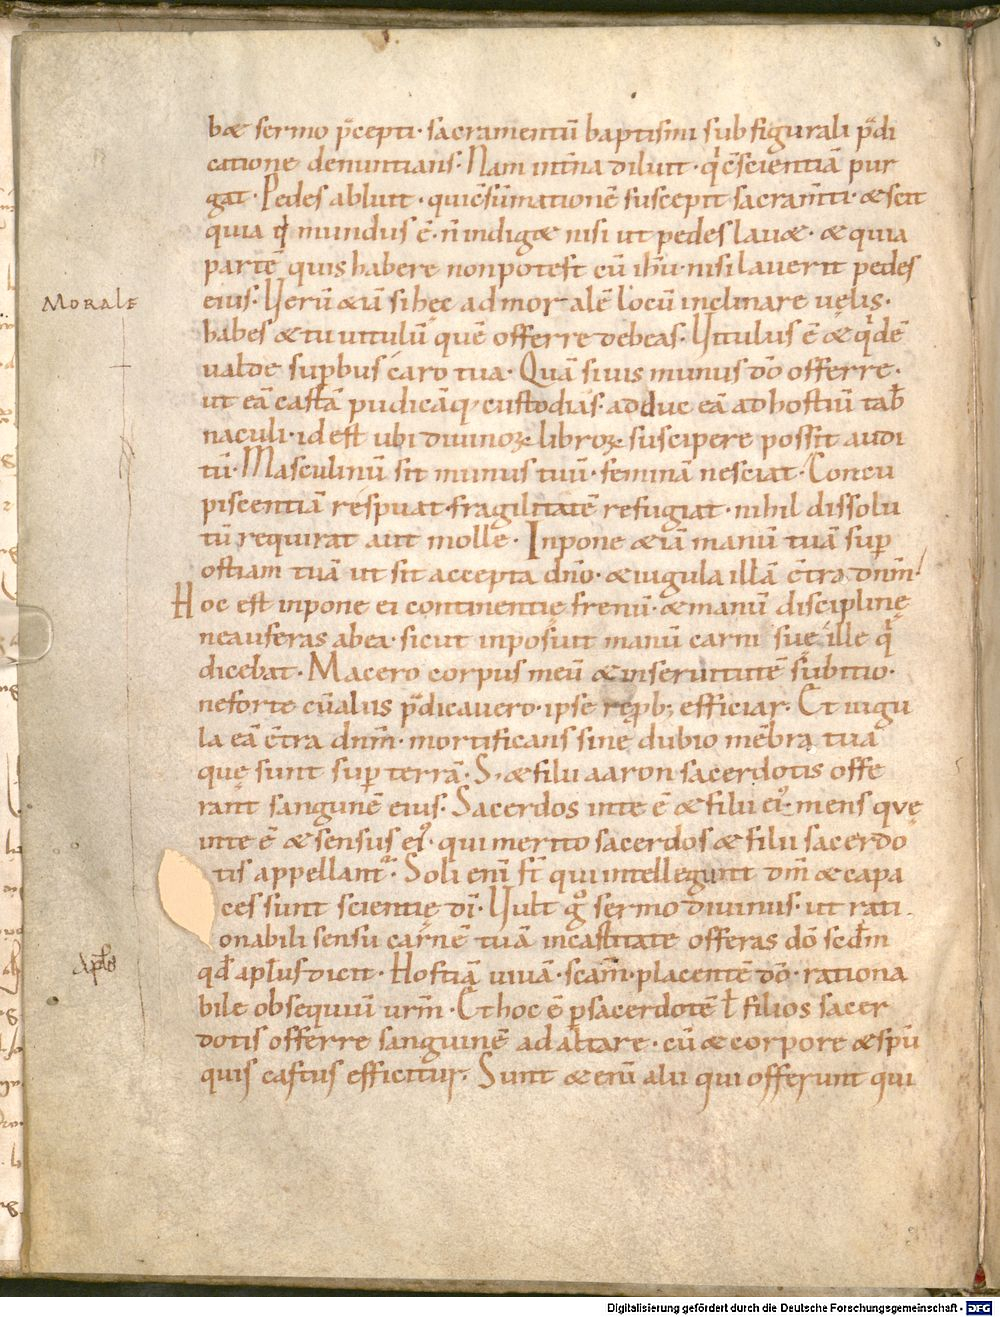 bæ sermo p̄cepti· sacramentū baptismi sub figurali p̄di
catione denuntians· Nam intīna diluit· q̇ c̄scientiā pur
gat· Pedes abluit· qui c̄sūmationē suscepit sacram̄ti· & scit
quia q̇ mundus ē· n̄ indig& nisi ut pedes lau&· & quia
partē quis habere non potest cū ihū· nisi lauerit pedes
Morale
eius· Uerū &iā si hęc ad moralē locū inclinare uelis·
habes & tu uitulū quē offerre debeas· Uitulus ē & q̇dē
ualde sup̄bus caro tua· Quā si uis munus dō offerre·
ut eā castā pudicāq; custodias· adduc eā ad hostiū tab̄
naculi· id est ubi diuinoꝝ libroꝝ suscipere possit audi
tū· Masculinū sit munus tuū· feminā nesciat· Concu
piscentiā respuat· fragilitatē refugiat· nihil dissolu
tū requirat aut molle· Inpone &iā manū tuā sup̄
ostiam tuā ut sit accepta dn̄o· & iugula illā c̄tra dn̄m·
Hoc est inpone ei continentię frenū· & manū disciplinę
ne auferas ab ea· sicut inposuit manū carni suę ille q̇
dicebat· Macero corpus meū & in seruitutē subitio·
ne forte cū aliis p̄dicauero· ipse rep̄b; efficiar· Et iugu
la eā c̄tra dn̄m· mortificans sine dubio mēbra tua
quę sunt sup̄ terrā· S; & filii aaron sacerdotis offe
rant sanguinē eius· Sacerdos in te ē & filii ei᾿· mens quę
in te ē & sensus ei᾿· qui merito sacerdos & filii sacerdo
tis appellant᾿· Soli enī st̄ qui intellegunt dm̄ & capa
ces sunt scientię dī· Uult g͛ sermo diuinus· ut rati
onabili sensu carnē tuā in castitate offeras dō scdm̄
Apl̄s
qd̄ apl̄us dicit· Hostiā uiuā· scām· placentē dō· rationa
bile obsequiū urm̄· Et hoc ē p̄ sacerdotē l̄ filios sacer
dotis offerre sanguinē ad altare· cū & corpore & spū
quis castus efficitur· Sunt & enī alii qui offerunt qui
Digitalisierung gefördert durch die Deutsche Forschungsgemeinschaft - DFG